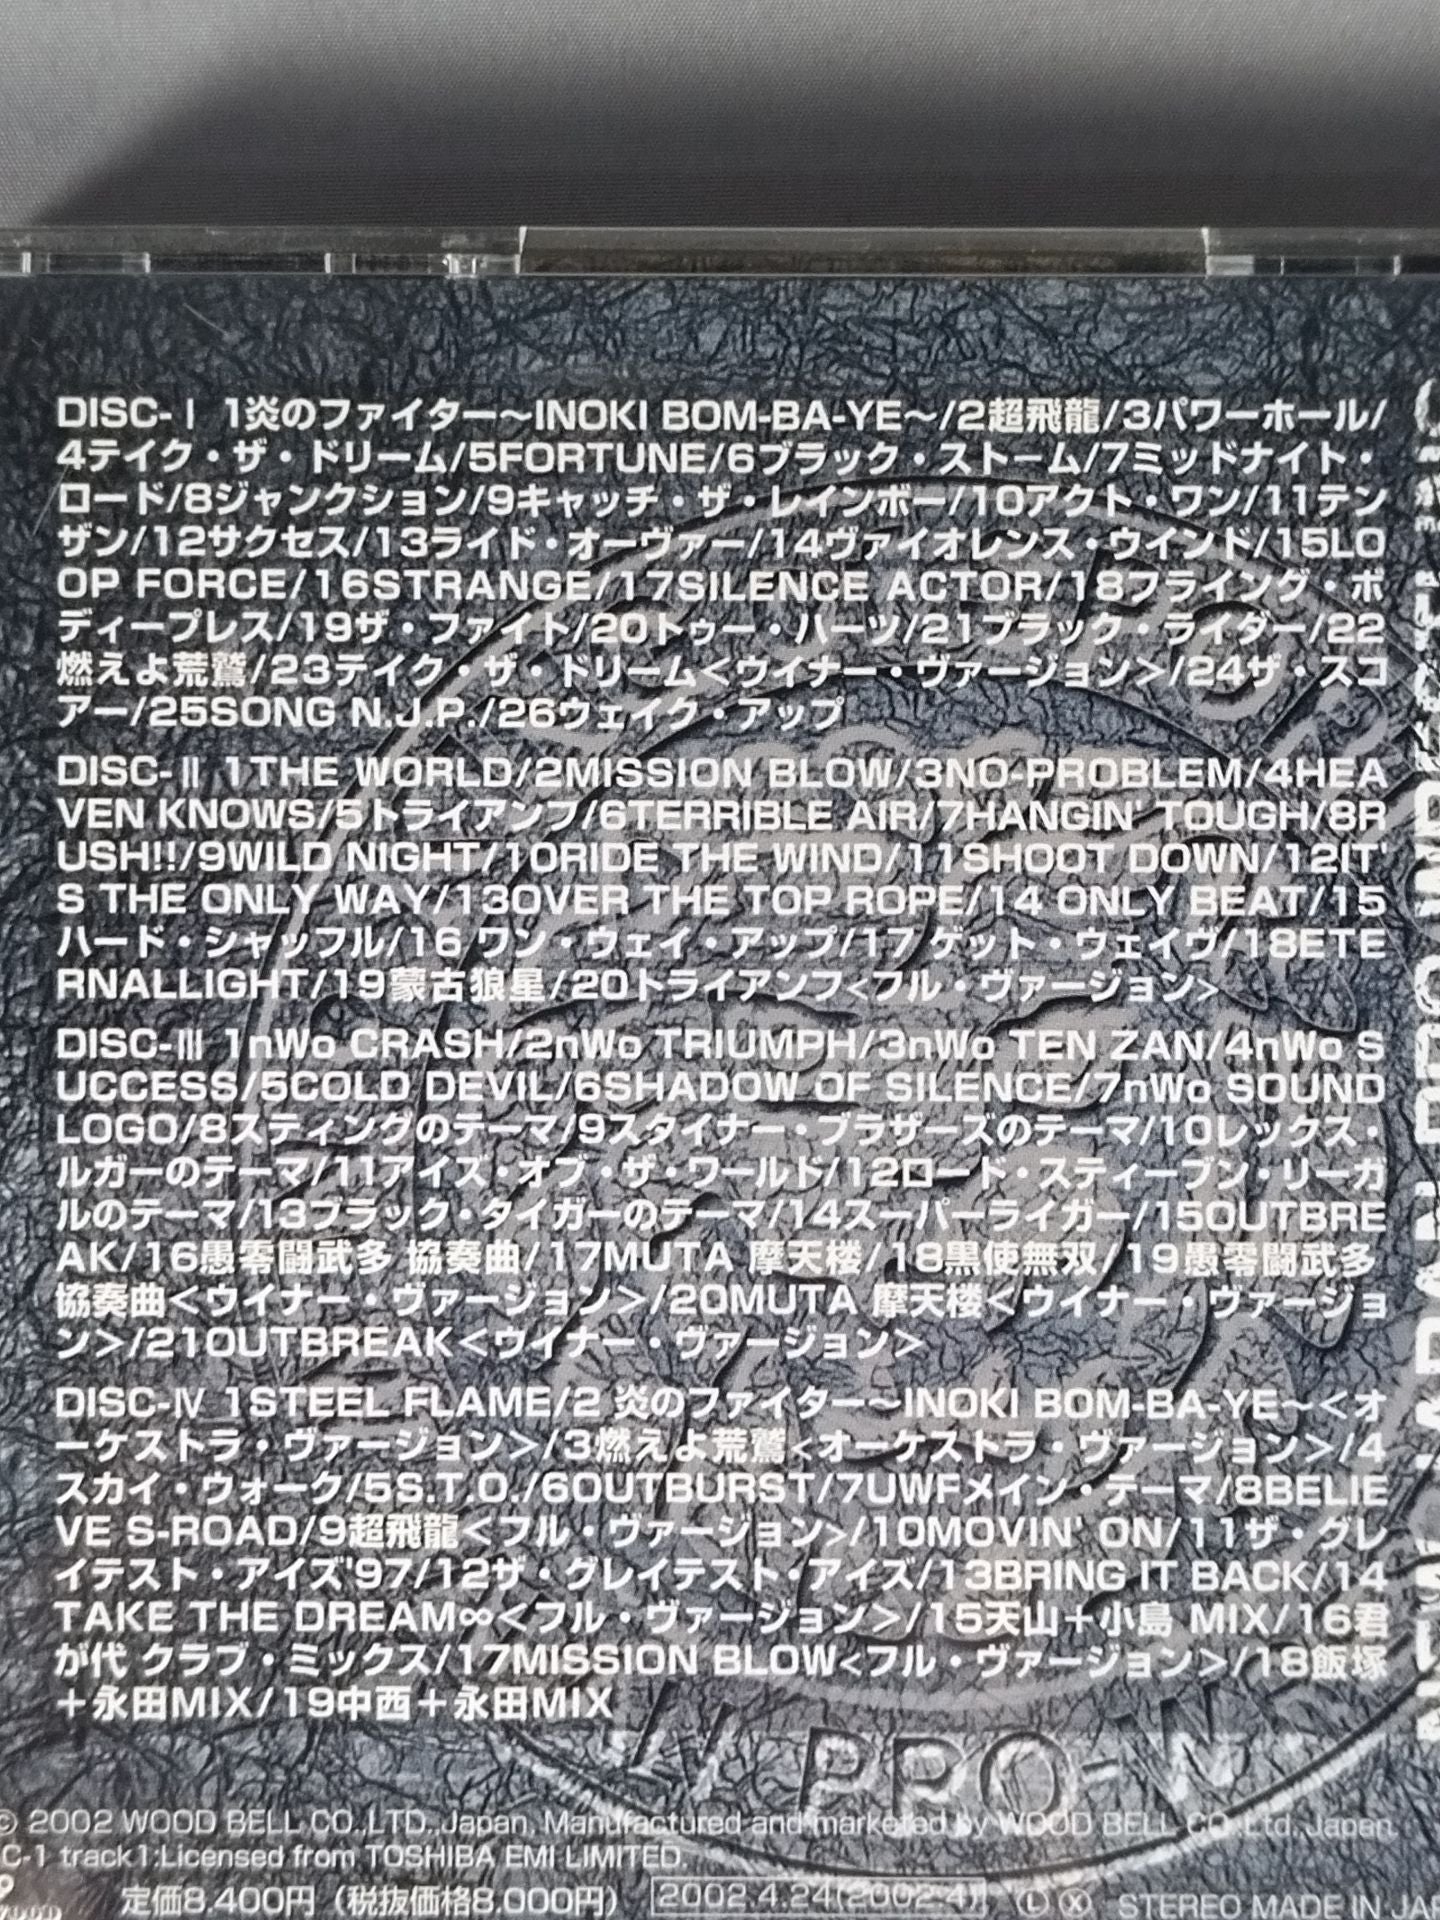 DISC-Ⅰ 1炎のファイター～INOKI BOM-BA-YE～/2超飛龍/3パワーホール/
4テイク・ザ・ドリーム/5FORTUNE/6ブラック・ストーム/7ミッドナイト・
ロード/8ジャンクション/9キャッチ・ザ・レインボー/10アクト・ワン/11テン
ザン/12サクセス/13ライド・オーヴァー/14ヴァイオレンス・ウインド/15LO
OP FORCE/16STRANGE/17SILENCE ACTOR/18フライング・ボ
ディープレス/19ザ・ファイト/20トゥー・ハーツ/21ブラック・ライダー/22
燃えよ荒鷲/23テイク・ザ・ドリーム<ウイナー・ヴァージョン>/24ザ・スコ
アー/25SONG N.J.P./26ウェイク・アップ
DISC-Ⅱ 1THE WORLD/2MISSION BLOW/3NO-PROBLEM/4HEA
VEN KNOWS/5トライアンフ/6TERRIBLE AIR/7HANGIN' TOUGH/8R
USH!!/9WILD NIGHT/10RIDE THE WIND/11SHOOT DOWN/12IT'
S THE ONLY WAY/13OVER THE TOP ROPE/14 ONLY BEAT/15
ハード・シャッフル/16 ワン・ウェイ・アップ/17 ゲット・ウェイヴ/18ETE
RNALLIGHT/19蒙古狼星/20トライアンフ<フル・ヴァージョン>
DISC-Ⅲ 1nWo CRASH/2nWo TRIUMPH/3nWo TEN ZAN/4nWo S
UCCESS/5COLD DEVIL/6SHADOW OF SILENCE/7nWo SOUND
LOGO/8スティングのテーマ/9スタイナー・ブラザーズのテーマ/10レックス・
ルガーのテーマ/11アイズ・オブ・ザ・ワールド/12ロード・スティーブン・リーガ
ルのテーマ/13ブラック・タイガーのテーマ/14スーパーライガー/15OUTBRE
AK/16愚零闘武多 協奏曲/17MUTA 摩天楼/18黒使無双/19愚零闘武多
協奏曲<ウイナー・ヴァージョン>/20MUTA 摩天楼<ウイナー・ヴァージョ
ン>/21OUTBREAK<ウイナー・ヴァージョン>
DISC-Ⅳ 1STEEL FLAME/2 炎のファイター～INOKI BOM-BA-YE～<オ
ーケストラ・ヴァージョン>/3燃えよ荒鷲<オーケストラ・ヴァージョン>/4
スカイ・ウォーク/5S.T.O./6OUTBURST/7UWFメイン・テーマ/8BELIE
VE S-ROAD/9超飛龍<フル・ヴァージョン>/10MOVIN' ON/11ザ・グレ
イテスト・アイズ'97/12ザ・グレイテスト・アイズ/13BRING IT BACK/14
TAKE THE DREAM∞<フル・ヴァージョン>/15天山＋小島 MIX/16君
が代 クラブ・ミックス/17MISSION BLOW<フル・ヴァージョン>/18飯塚
＋永田MIX/19中西＋永田MIX
PRO-W
© 2002 WOOD BELL CO.,LTD.,Japan, Manufactured and marketed by WOOD BELL CO.,Ltd.,Japan.
C-1 track1:Licensed from TOSHIBA EMI LIMITED.
9 定価8,400円（税抜価格8,000円） 2002.4.24(2002.4) Ⓛ Ⓧ STEREO MADE IN JA